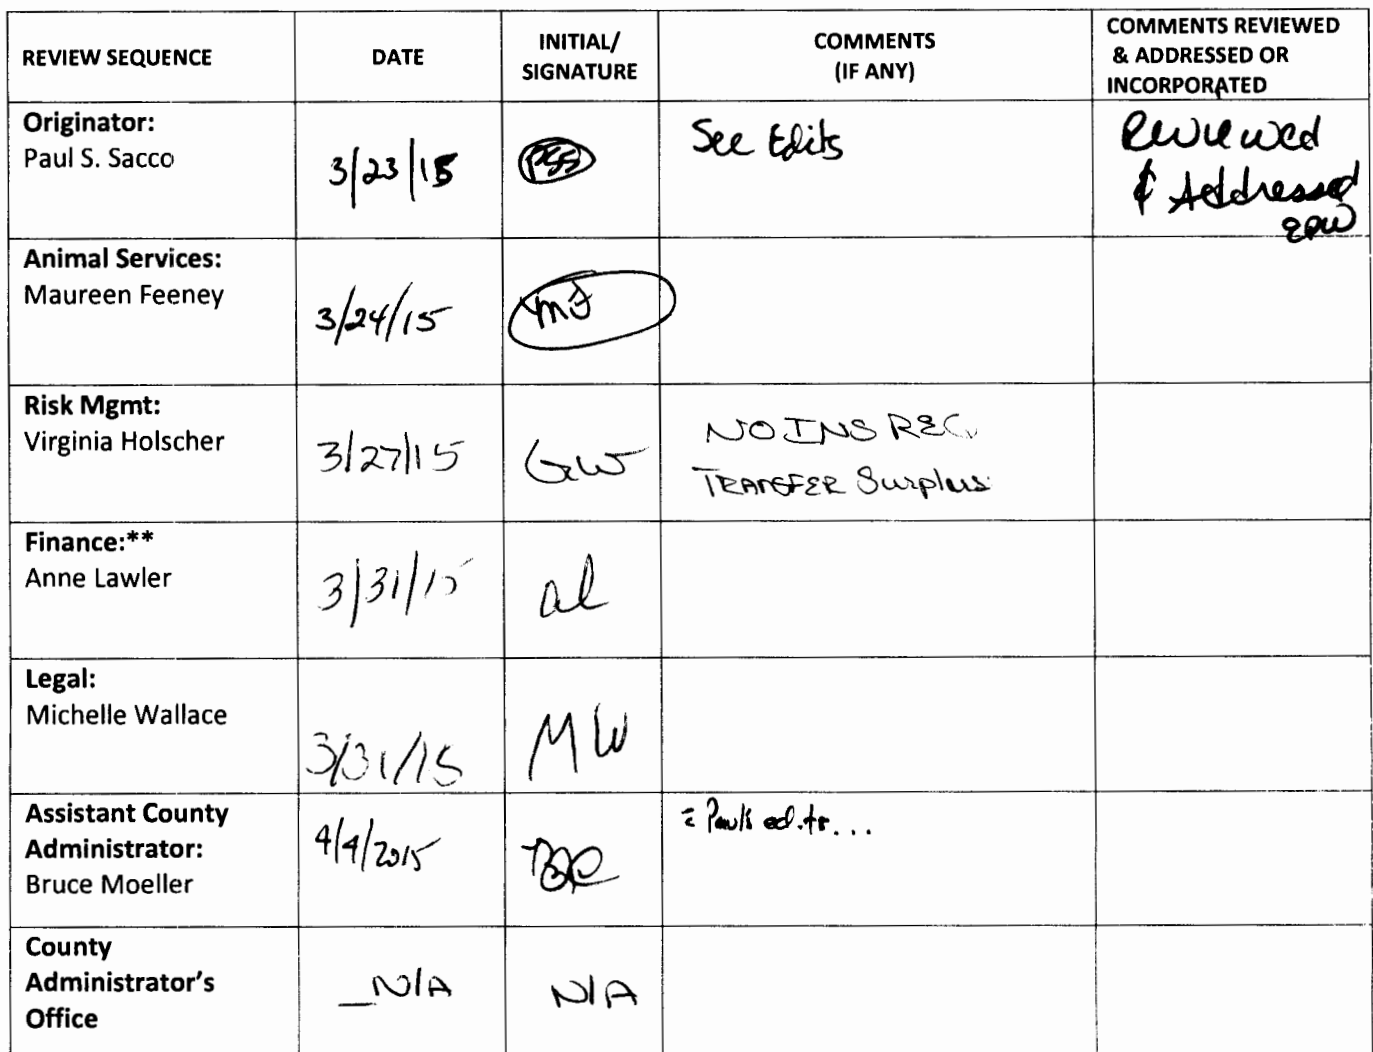 REVIEW SEQUENCE
DATE
INITIAL/
SIGNATURE
COMMENTS
(IF ANY)
COMMENTS REVIEWED
& ADDRESSED OR
INCORPORATED
Originator:
Paul S. Sacco
3/23/15
PSS
See Edits
Reviewed
& Addressed
Animal Services:
Maureen Feeney
3/24/15
MF
Risk Mgmt:
Virginia Holscher
3/27/15
NO INS REQ.
TRANSFER Surplus
Finance:**
Anne Lawler
3/31/15
al
Legal:
Michelle Wallace
3/31/15
MW
Assistant County
Administrator:
Bruce Moeller
4/4/2015
Paul's edits...
County
Administrator's
Office
N/A
N/A